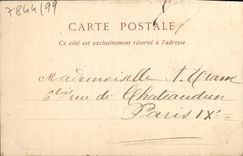 7844/99
CARTE POSTALE
Ce côté est exclusivement réservé à l'adresse
Mademoiselle
rue de Chateaudun
Paris IXe